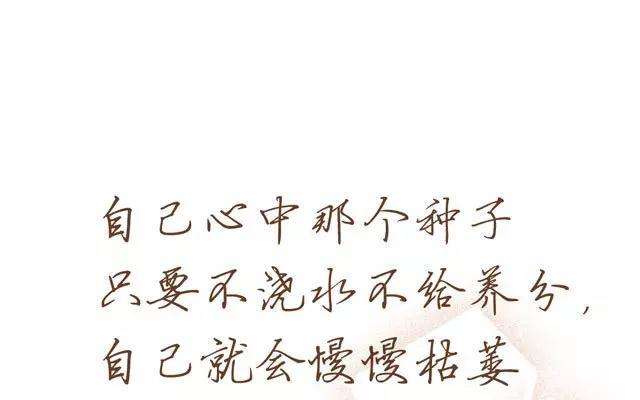 自己心中那个种子
只要不浇水不给养分，
自己就会慢慢枯萎